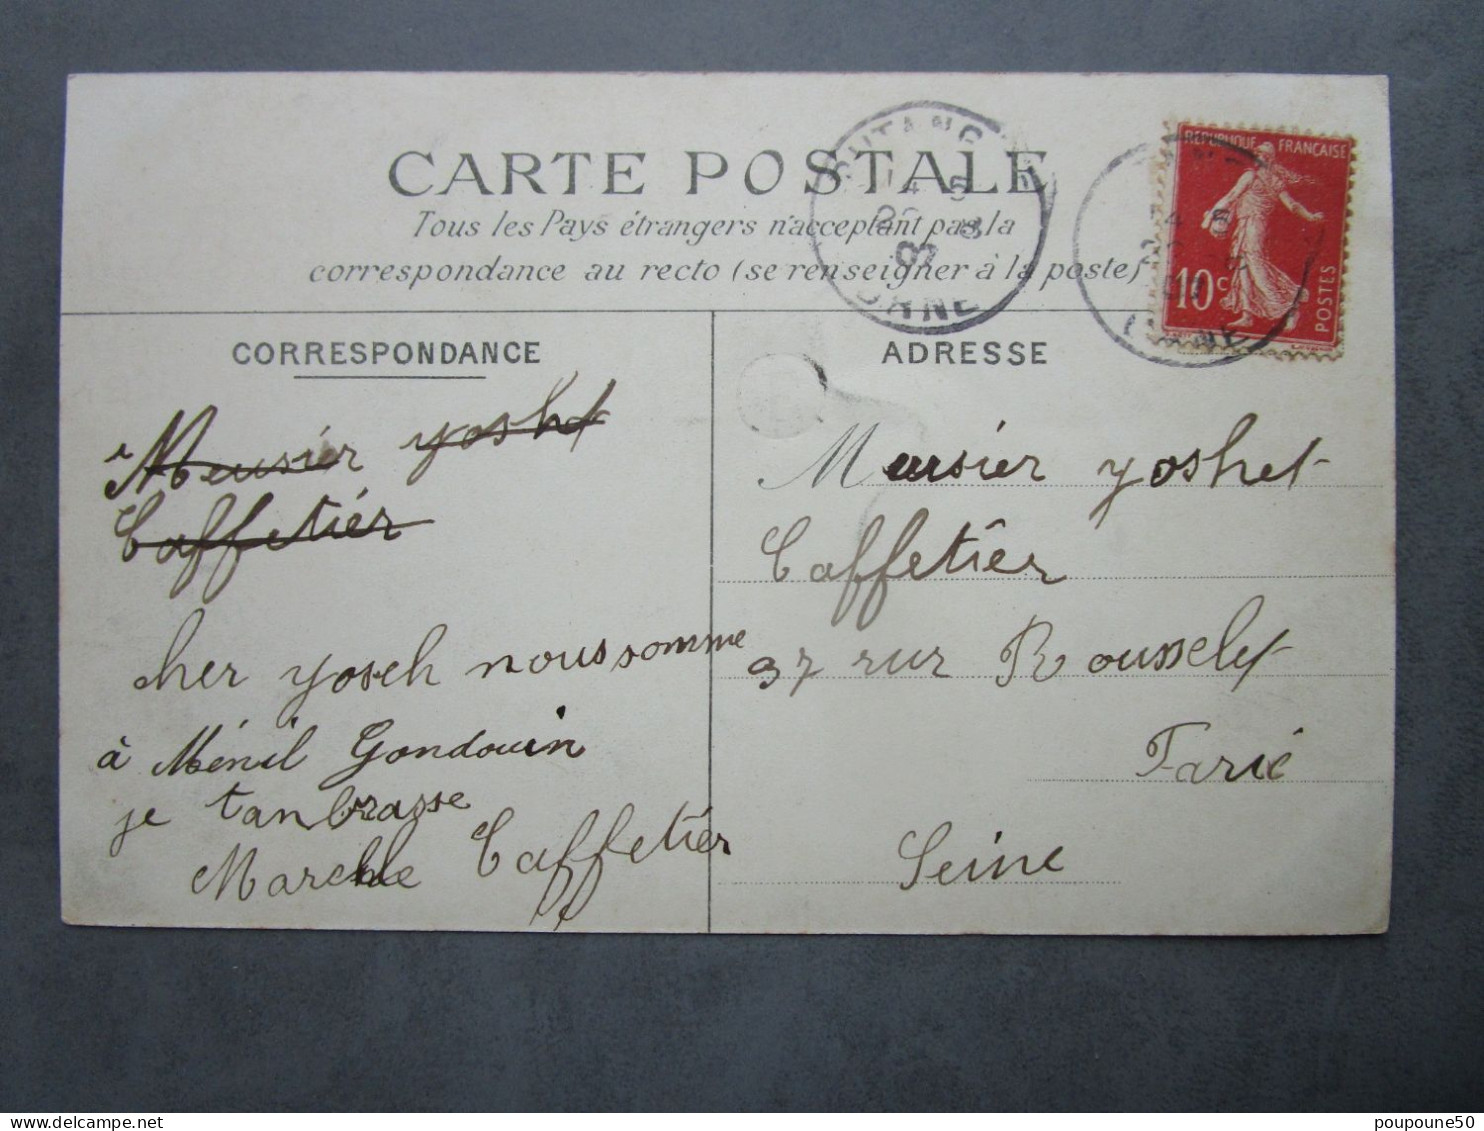 CARTE POSTALE
Tous les Pays étrangers n'acceptent pas la
correspondance au recto (se renseigner à la poste)
PUTANG
14 5
8
ORNE
REPUBLIQUE FRANÇAISE
10c
POSTES
CORRESPONDANCE
Meusiér yoshet
Caffetiér
cher yoseh nous somme
à Ménil Gondouin
je tanbrasse
Marchle Caffetiér
ADRESSE
Meusiér yoshet
Caffetiér
37 rur Rousselet
Farie
Seine
poupoune50